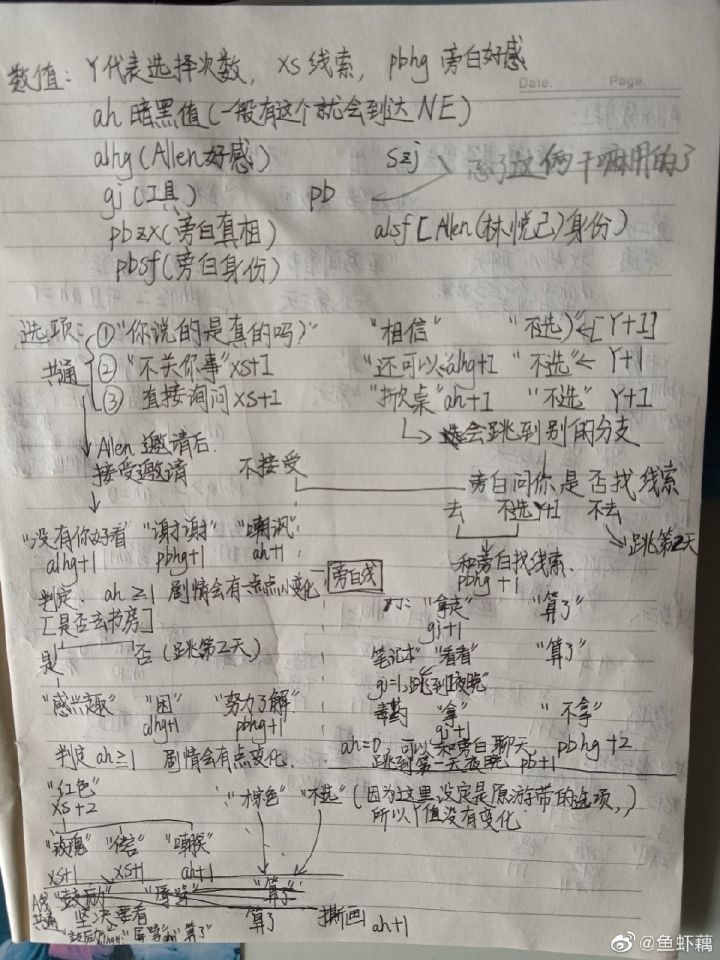 Date. Page.
数值：Y代表选择次数，xs线索，pbhg旁白好感
ah暗黑值(一般有这个就会到达NE)
alhg(Allen好感) szj
gj(工具) pb 忘了这俩干嘛用的了
pbzx(旁白真相) alsf[Allen(林悦己)身份)
pbsf(旁白身份)
选项：①"你说的是真的吗？" "相信" "不选"←[Y+1]
共通 ②"不关你事"xs+1 "还可以"alhg+1 "不选"← Y+1
③ 直接询问xs+1 "掀桌"ah+1 "不选" Y+1
会跳到别的分支
Allen邀请后.
接受邀请 不接受
旁白问你是否找线索
去 不选Y+1 不去
跳第2天
"没有你好看" "谢谢" "嘲讽"
alhg+1 pbhg+1 ah+1
和旁白找线索.
pbhg+1
判定、ah≥1 剧情会有一点点小变化 旁白线
[是否去书房]
"拿走" "算了"
gj+1
是 否(跳第2天)
笔记本 "看看" "算了"
gj=1,跳到1夜晚
"感兴趣" "困" "努力了解"
alhg+1 pbhg+1
毒药 "拿" "不拿"
gj+1
判定ah≥1 剧情会有点变化.
ah=0,可以和旁白聊天, pbhg+2
跳到第一天夜晚 pb+1
"红色" "棕色" "不选" (因为这里设定是原游带的选项,)
xs+2 所以Y值没有变化
"玫瑰" "信" "嘲笑"
xs+1 xs+1 ah+1
"鼓励" "算了"
共通 坚决要看 算了 撕画 ah+1
"算了"
@鱼虾藕